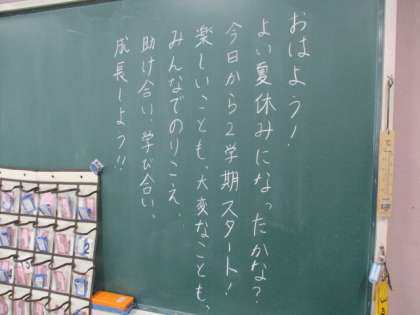 おはよう!
よい夏休みになったかな?
今日から2学期スタート!
楽しいことも、大変なことも、
みんなでのりこえ、
助け合い、学び合い、
成長しよう!!